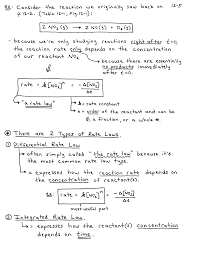 EX: Consider the reaction we originally saw back on
12-5
p.12-2. (Table 12-1; Fig. 12-1):
2 NO₂(g) → 2 NO(g) + O₂(g)
- because we're only studying reactions right after t=0,
the reaction rate only depends on the concentration
of our reactant NO₂
because there are essentially
no products immediately
after t=0.
rate = k[NO₂]ⁿ = -Δ[NO₂]/Δt
"a rate law"
k = rate constant
n = order of the reactant and can be
0, a fraction, or a whole #.
There are 2 Types of Rate Laws.
① Differential Rate Law
→ often simply called "the rate law" because it's
the most common rate law type.
→ expresses how the reaction rate depends on
the concentration of reactant(s).
EX: rate = k[NO₂]ⁿ = -Δ[NO₂]/Δt
most useful part
② Integrated Rate Law
→ expresses how the reactant(s) concentration
depends on time.